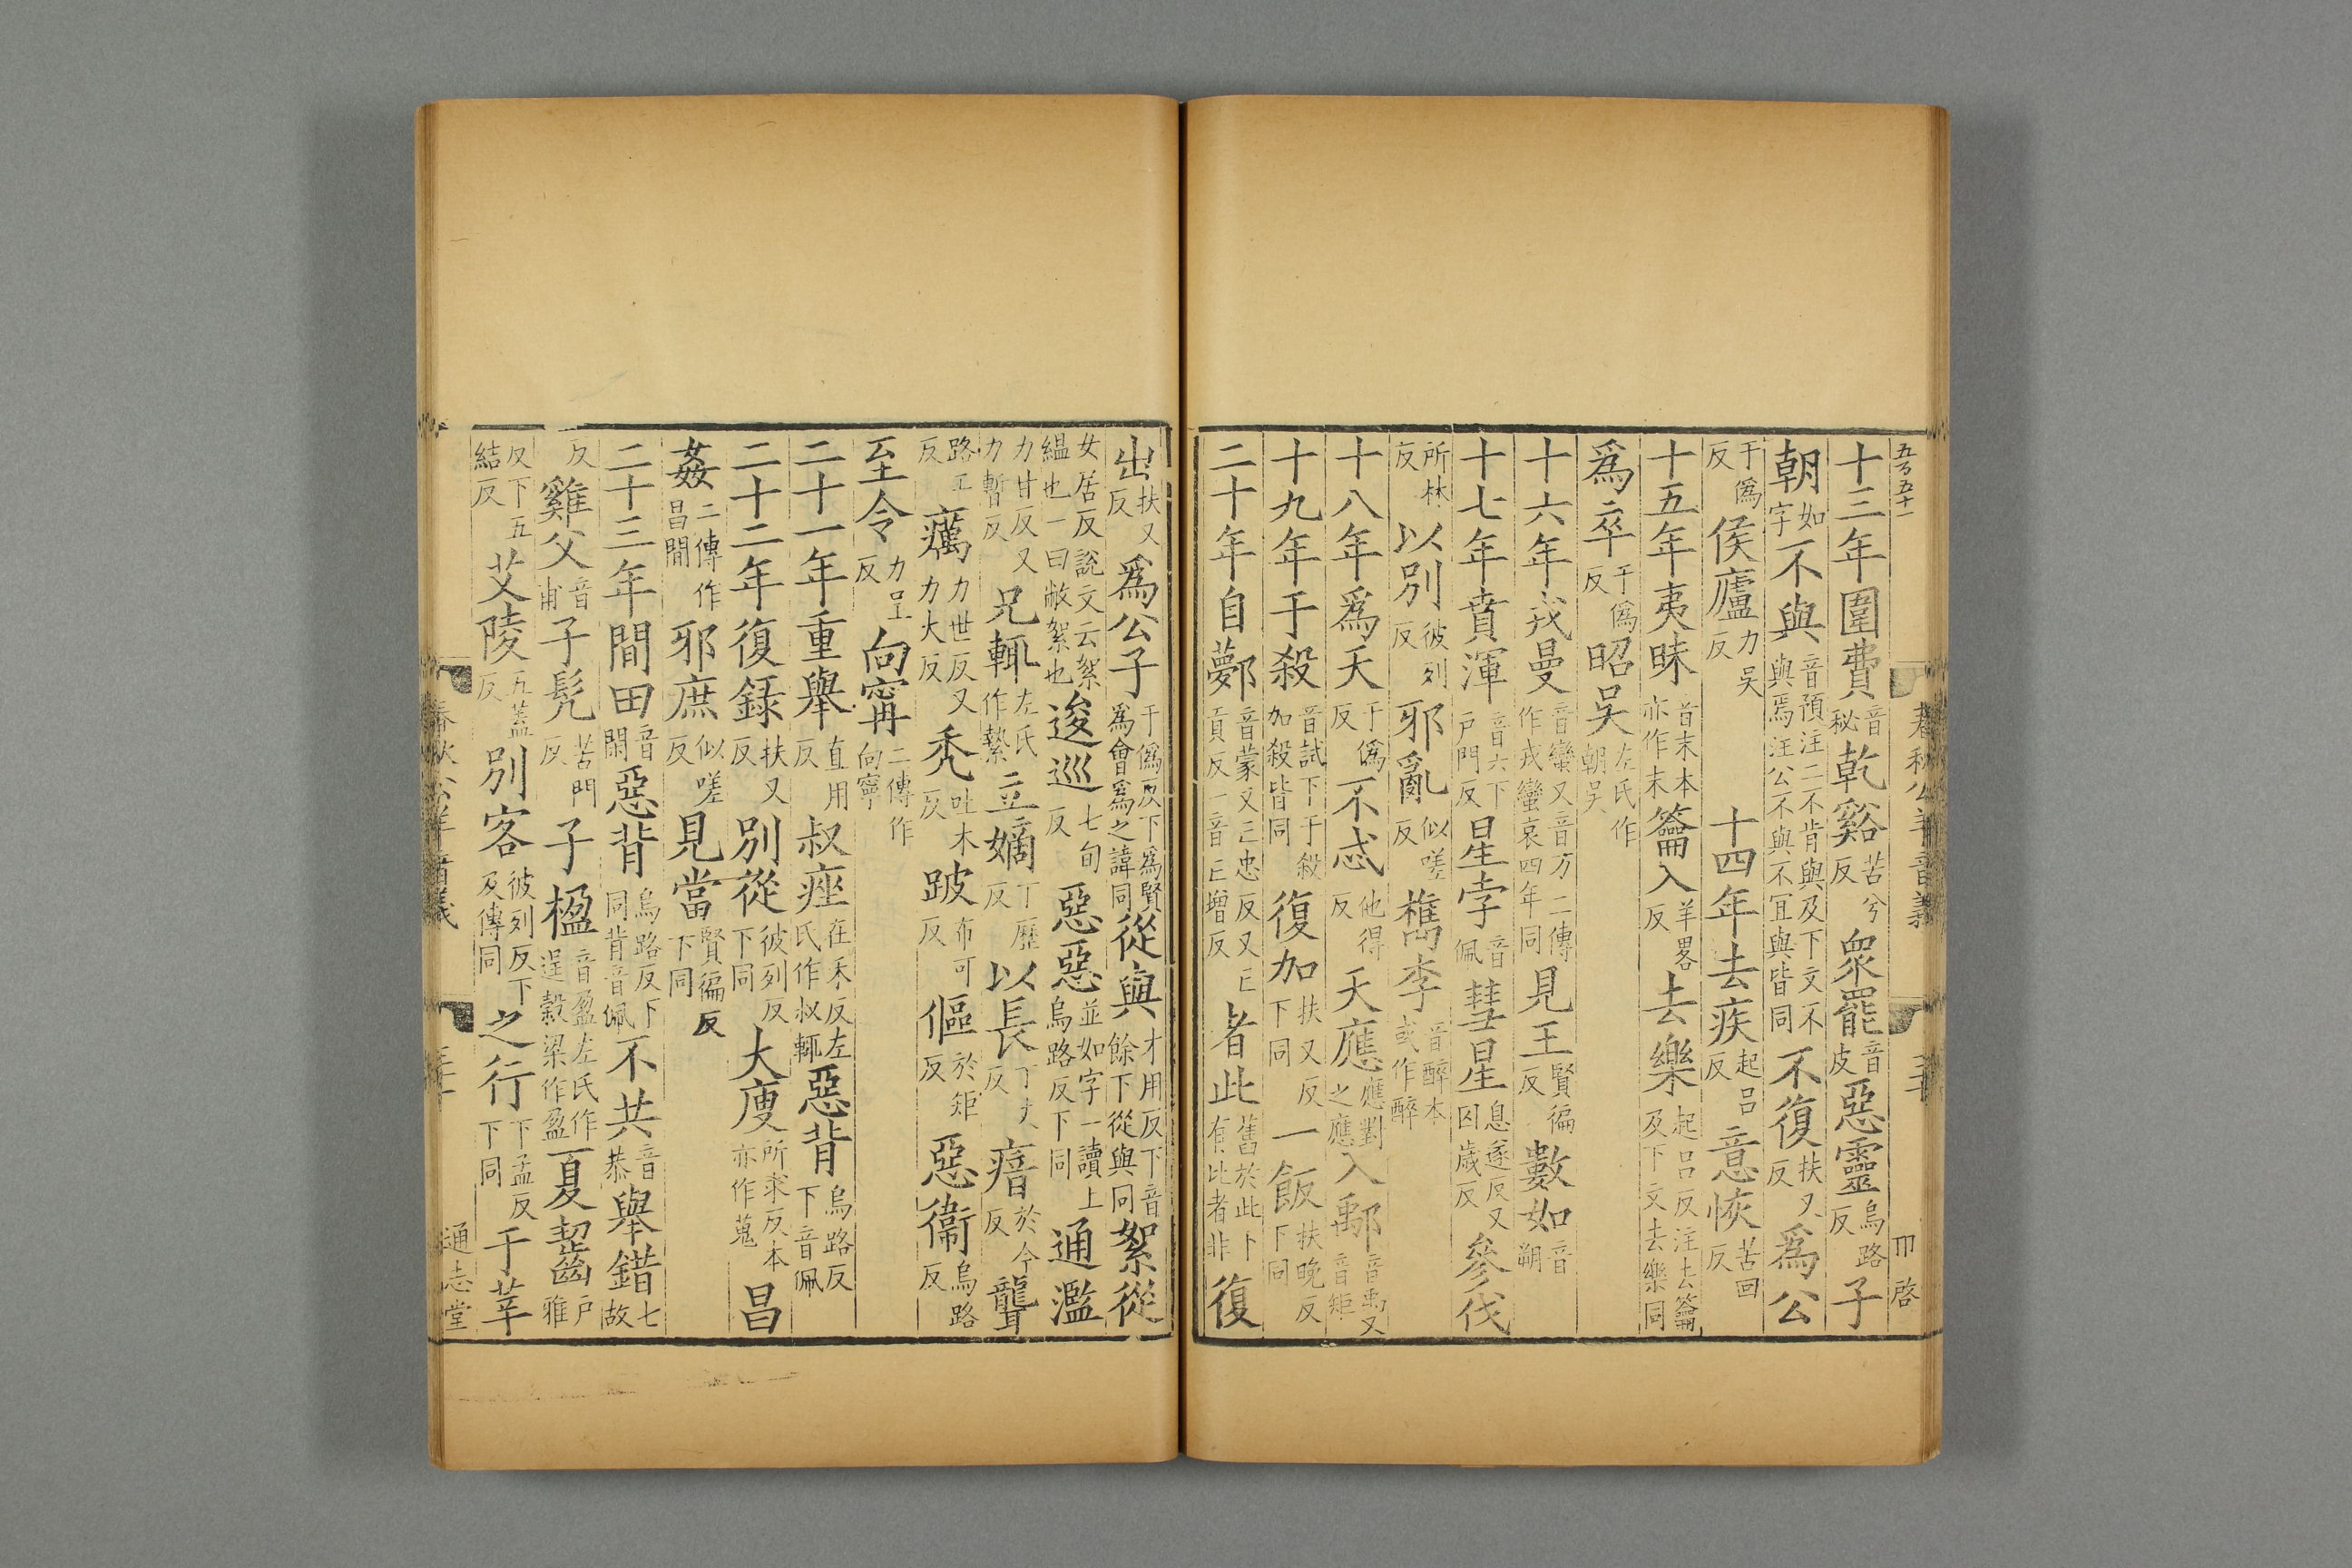 五百五十一
春秋公羊音義 三十 啓
十三年圍費音秘乾谿苦兮反衆罷音皮惡靈烏路反子
朝如字不與音預注二不肯與及下文不與焉注公不與不宜與皆同不復扶又反爲公
于僞反侯廬力吳反 十四年去疾起呂反意恢苦回反
十五年夷昧音末本亦作末籥入羊畧反去樂起呂反注去籥及下文去樂同
爲卒于僞反昭吴左氏作朝吳
十六年戎曼音蠻又音万二傳作戎蠻哀四年同見王賢徧反數如音朔
十七年賁渾音六下戸門反星孛音佩彗星息遂反又囚歲反參伐
所林反以別彼列反邪亂似嗟反檇李音醉本或作醉
十八年爲天于僞反不忒他得反天應應對之應入鄅音禹又音矩
十九年于殺音試下于殺加殺皆同復加扶又反下同一飯扶晚反下同
二十年自鄸音蒙又亡忠反又亡貢反一音亡增反者此舊於此下有比者非復
出扶又反爲公子于僞反下爲賢爲會爲之諱同從與才用反下音餘下從與同絮從
女居反說文云絮緼也一曰敝絮也逡巡七旬反惡惡並如字一讀上烏路反下同通濫
力甘反又力暫反兄輒左氏作縶立嫡丁歷反以長丁丈反瘖於今反聾
路工反癘力世反又力大反禿吐木反跛布可反傴於矩反惡衞烏路反
至令力呈反向甯二傳作向寧
二十一年重舉直用反叔痤在禾反左氏作叔輒惡背烏路反下音佩
二十二年復錄扶又反別從彼列反下同大廋所求反本亦作蒐昌
姦二傳作昌間邪庶似嗟反見當賢徧反下同
二十三年間田音閑惡背烏路反下同背音佩不共音恭舉錯七故
反雞父音甫子髡苦門反子楹音盈左氏作逞穀梁作盈夏齧戸雅
反下五結反艾陵五葢反別客彼列反下及傳同之行下孟反下同于莘
春秋公羊音義 三十一 通志堂